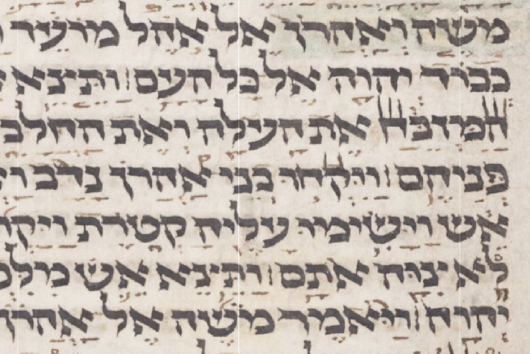 משה ואהרן אל אהל מועד ו
כבוד יהוה אל כל העם ותצא א
המזבח את העלה ואת החלב
פניהם ויקחו בני אהרן נדב וא
אש וישימו עליה קטרת ויקר
לא צוה אתם ותצא אש מלפ
יהוה ויאמר משה אל אהרן